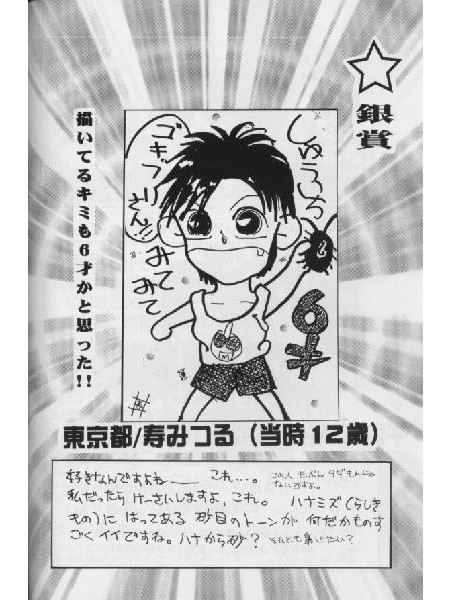 銀賞
描いてるキミも6才かと思った!!
しゅういち
6才
ゴキブリ
さん!!
みて
みて
M
東京都/寿みつる(当時12歳)
好きなんですよね── これ…。 この人 たぶん タダもんじゃ
ないですよ。
私だったら けーさいしますよ、これ。 ハナミズ(らしき
もの)に はってある 砂目のトーンが 何だかものす
ごく イイですね。ハナから砂?